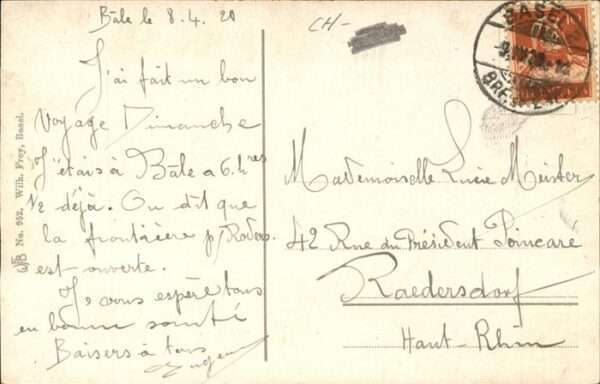 Bâle le 8.4.20
J'ai fait un bon
Voyage Dimanche
J'étais à Bâle a 6.hres
1/2 déjà. On dit que
la frontière p/ Roders.
est ouverte.
J' vous espère tous
en bonne santé
Baisers à tous
Eugene
No. 952. Wilh. Frey, Basel.
CH-
BASEL
Mademoiselle Lucie Meister
42 Rue du Président Poincaré
Raedersdorf
Haut-Rhin